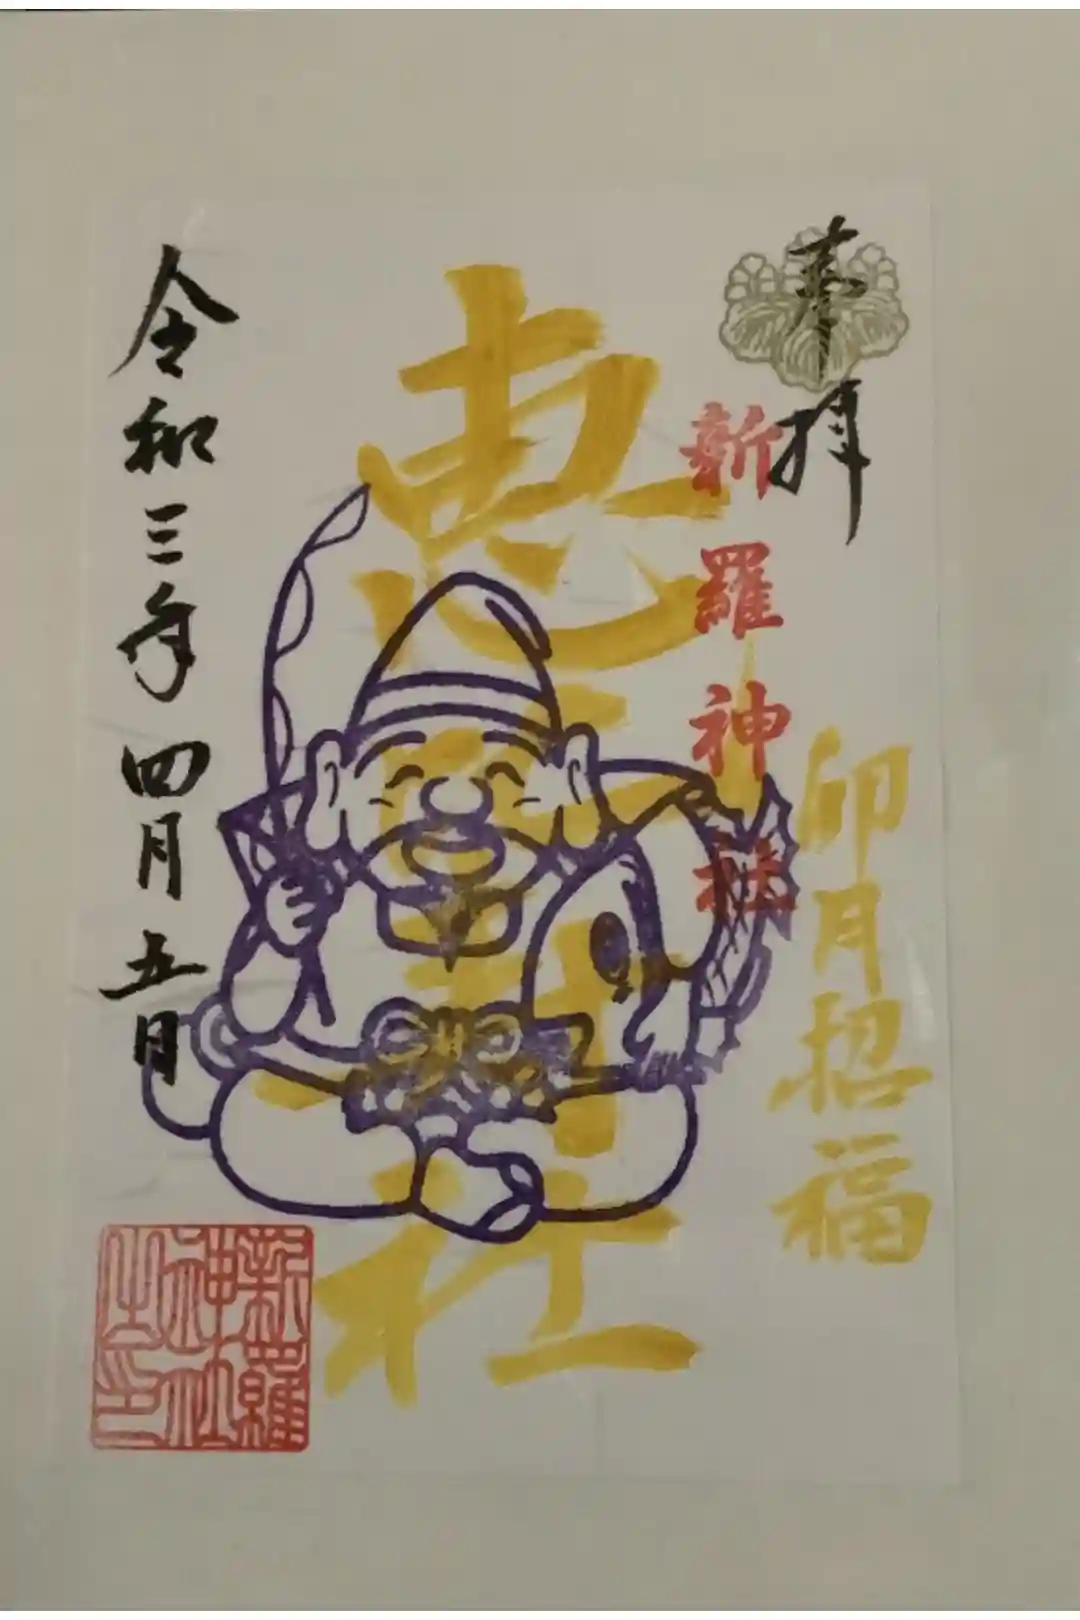 奉拝
新羅神社
卯月招福
恵比寿社
令和三年 四月 五日
新羅
神社
之印